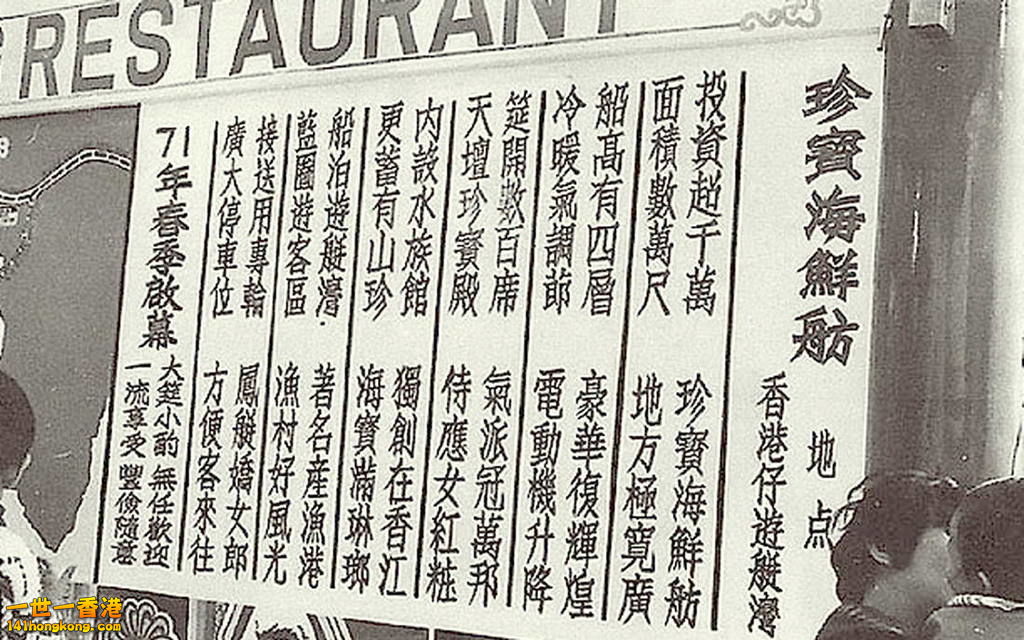 RESTAURANT
珍寶海鮮舫
地点
香港仔遊艇灣
投資超千萬 珍寶海鮮舫
面積數萬尺 地方極寬廣
船高有四層 豪華復輝煌
冷暖氣調節 電動機升降
筵開數百席 氣派冠萬邦
天壇珍寶殿 侍應女紅粧
內設水族館 獨創在香江
更蓄有山珍 海寶滿琳瑯
船泊遊艇灣 著名產漁港
藍圖遊客區 漁村好風光
接送用專輪 鳳艇嬌女郎
廣大停車位 方便客來往
71年春季啟幕
大筵小酌 無任歡迎
一流享受 豐儉隨意
一世一香港
141hongkong.com